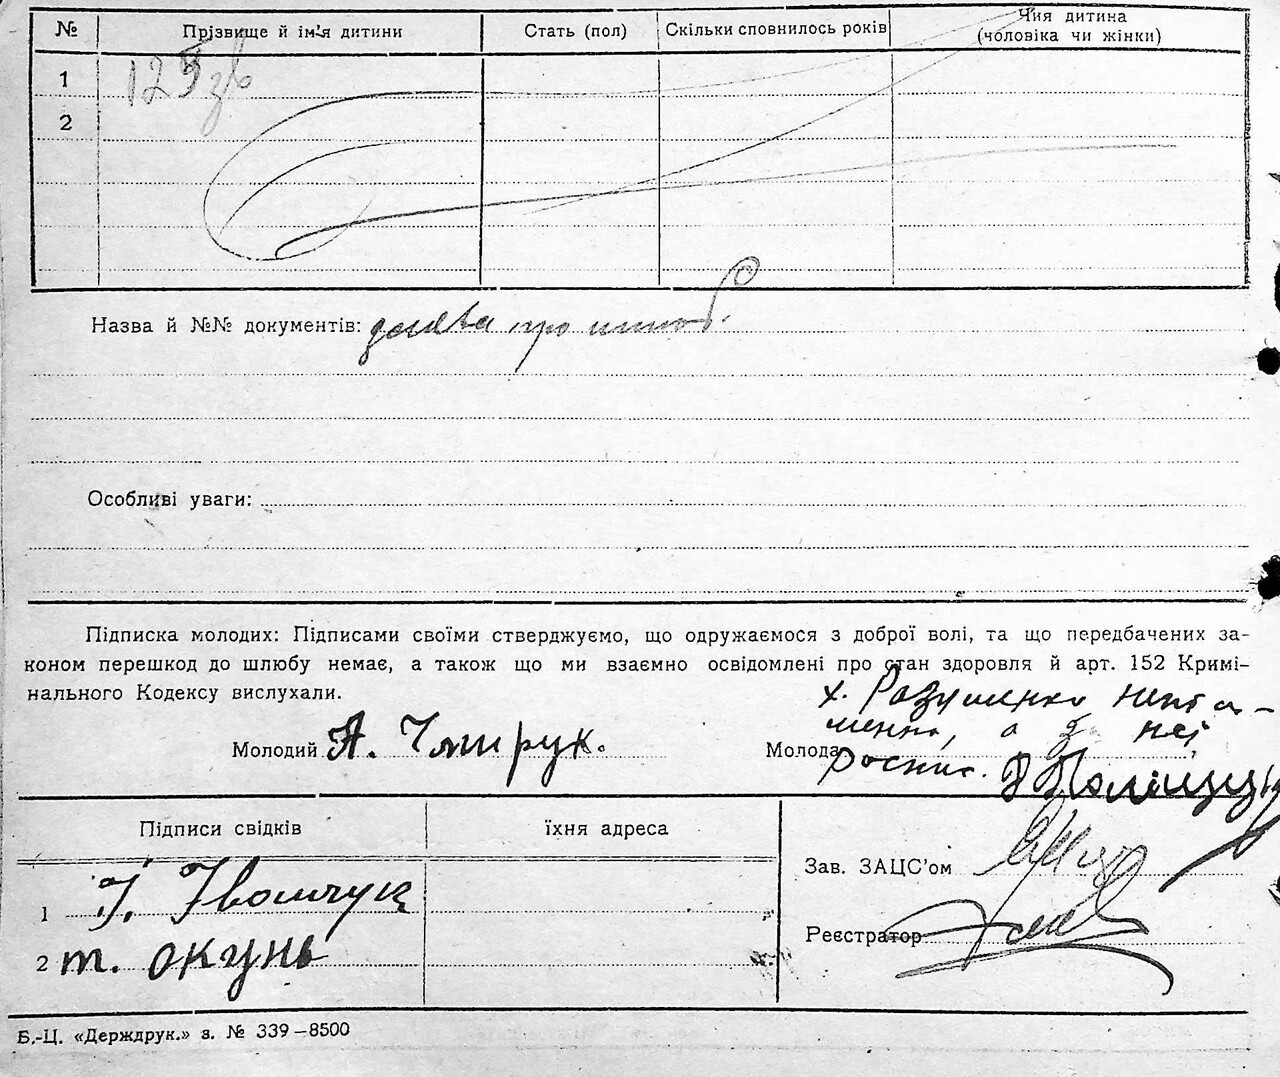 № Прізвище й ім'я дитини Стать (пол) Скільки сповнилось років Чия дитина
(чоловіка чи жінки)
1 125 зв
2
Назва й №№ документів: заява про шлюб.
Особливі уваги:
Підписка молодих: Підписами своїми стверджуємо, що одружаємося з доброї волі, та що передбачених за-
коном перешкод до шлюбу немає, а також що ми взаємно освідомлені про стан здоровля й арт. 152 Кримі-
нального Кодексу вислухали.
х. Разуменко непись-
менна, а за неї
Молодий А. Чмирук. Молода роспис. Поліщук
Підписи свідків їхня адреса
Зав. ЗАЦС'ом
1 І. Івончук
Реєстратор
2 т. окунь
Б.-Ц. «Держдрук.» з. № 339–8500